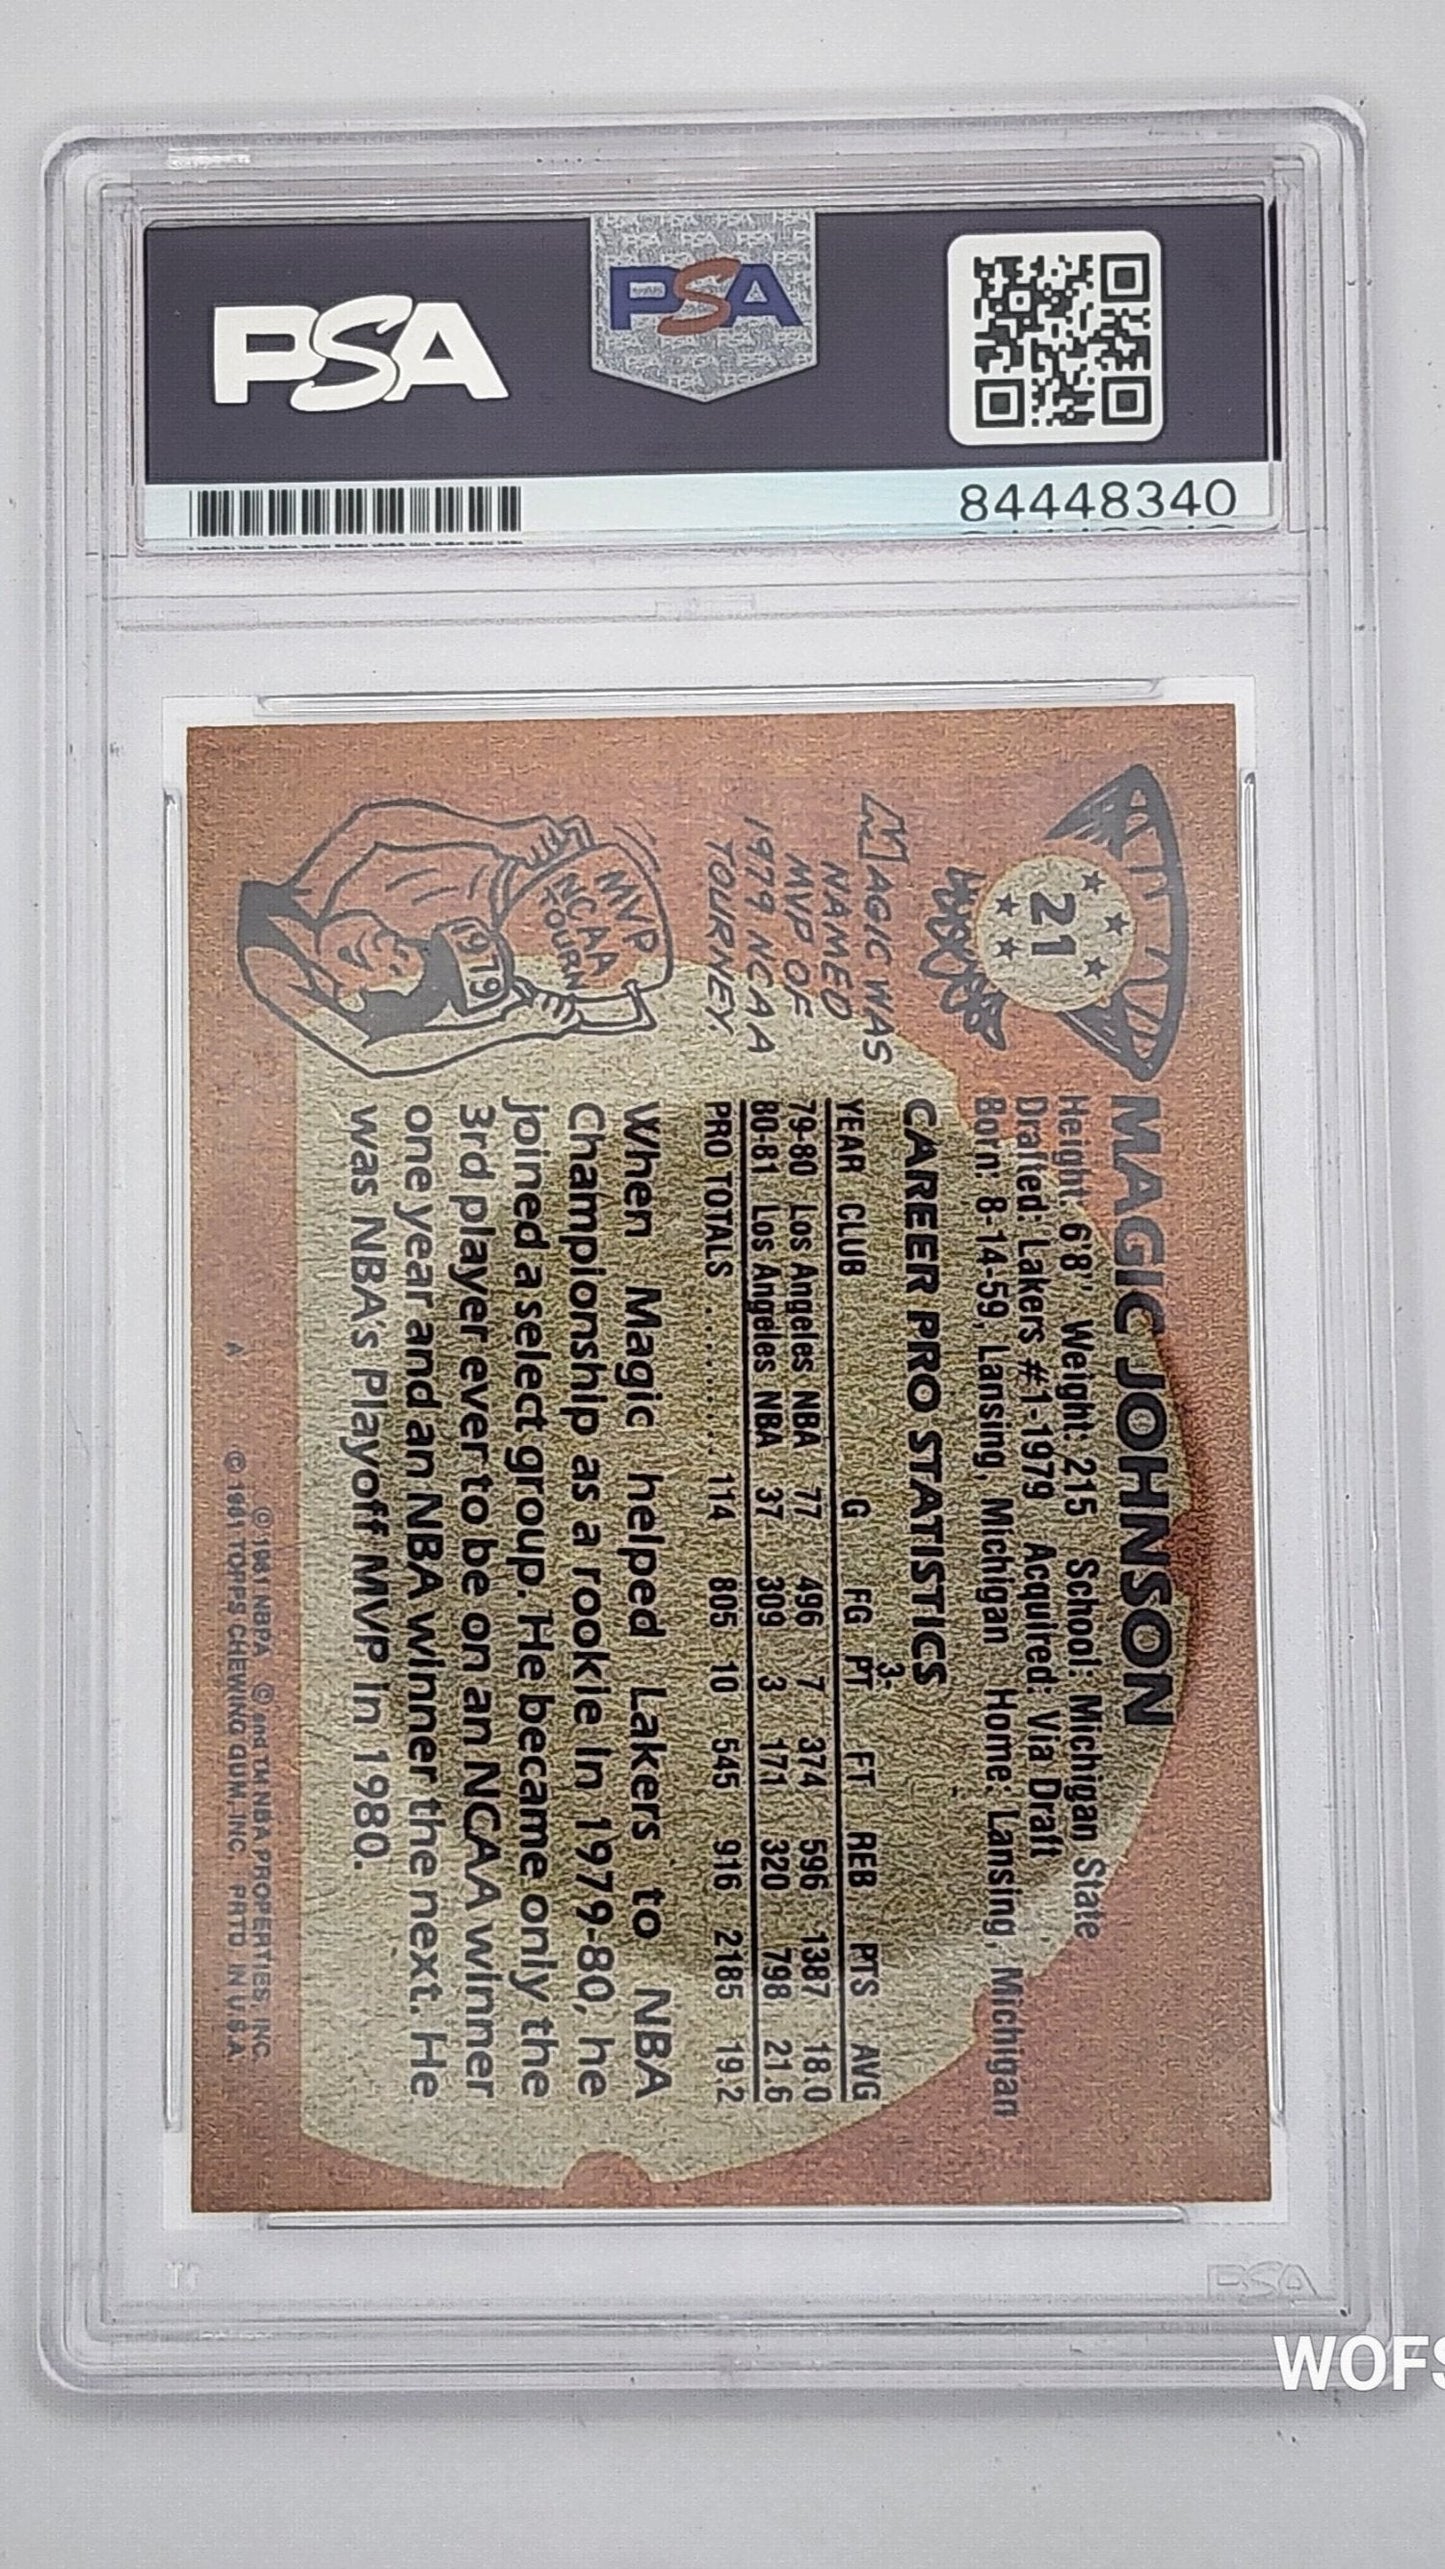 PSA
PSA
84448340
21
MAGIC JOHNSON
Height: 6'8" Weight: 215 School: Michigan State
Drafted: Lakers #1-1979 Acquired: Via Draft
Born: 8-14-59, Lansing, Michigan Home: Lansing, Michigan
CAREER PRO STATISTICS
YEAR CLUB G FG 3-PT FT REB PTS AVG
79-80 Los Angeles NBA 77 496 7 374 596 1387 18.0
80-81 Los Angeles NBA 37 309 3 171 320 798 21.6
PRO TOTALS ........... 114 805 10 545 916 2185 19.2
When Magic helped Lakers to NBA
Championship as a rookie in 1979-80, he
joined a select group. He became only the
3rd player ever to be on an NCAA winner
one year and an NBA winner the next. He
was NBA's Playoff MVP in 1980.
MAGIC WAS
NAMED
MVP OF
1979 NCAA
TOURNEY.
MVP
NCAA
TOURN
1979
© 1981 NBPA © and TM NBA PROPERTIES, INC.
A © 1981 TOPPS CHEWING GUM, INC. PRTD. IN U.S.A.
PSA
WOFS